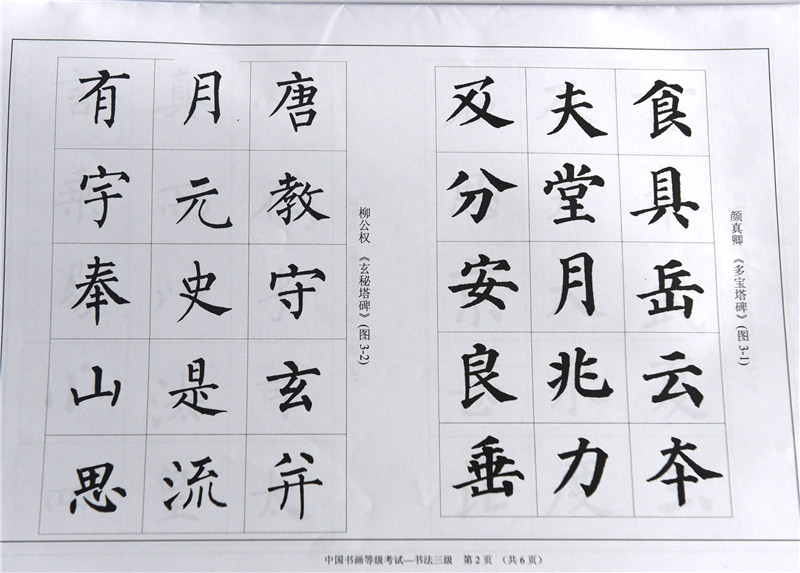 颜真卿 《多宝塔碑》(图3-1)
食具岳云夲
夫堂月兆力
及分安良垂
柳公权 《玄秘塔碑》(图3-2)
唐教守玄并
月元史是流
有宇奉山思
中国书画等级考试—书法三级 第2页 (共6页)